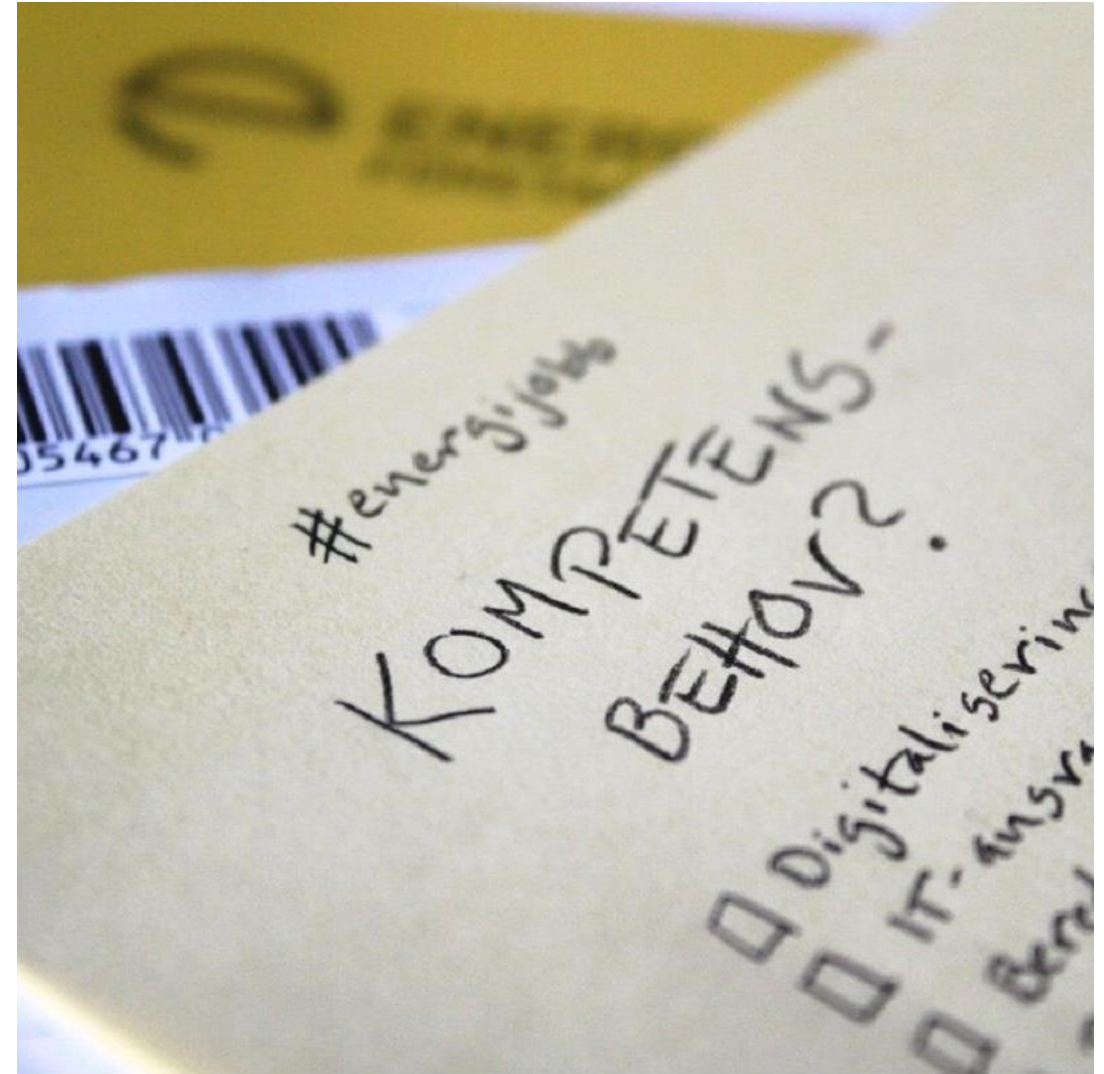 05467
#energijobb
KOMPETENS-
BEHOV?
Digitalisering
IT-ansva
Bered